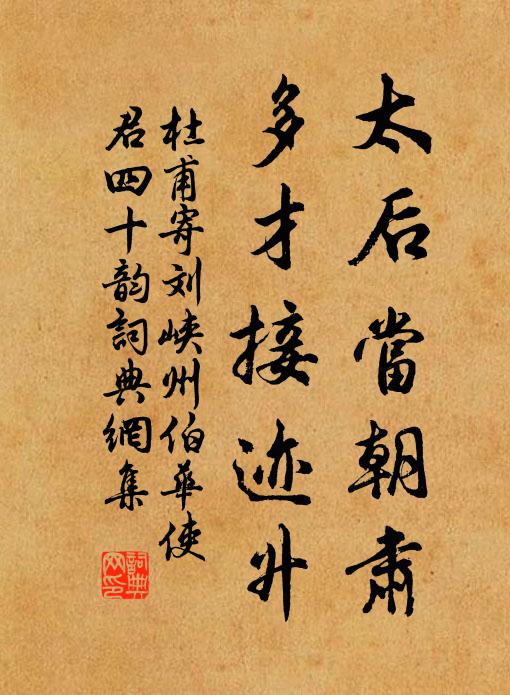 太后當朝肅
多才接迹升
杜甫寄刘峡州伯華使
君四十韵詞典網集
詞典网印